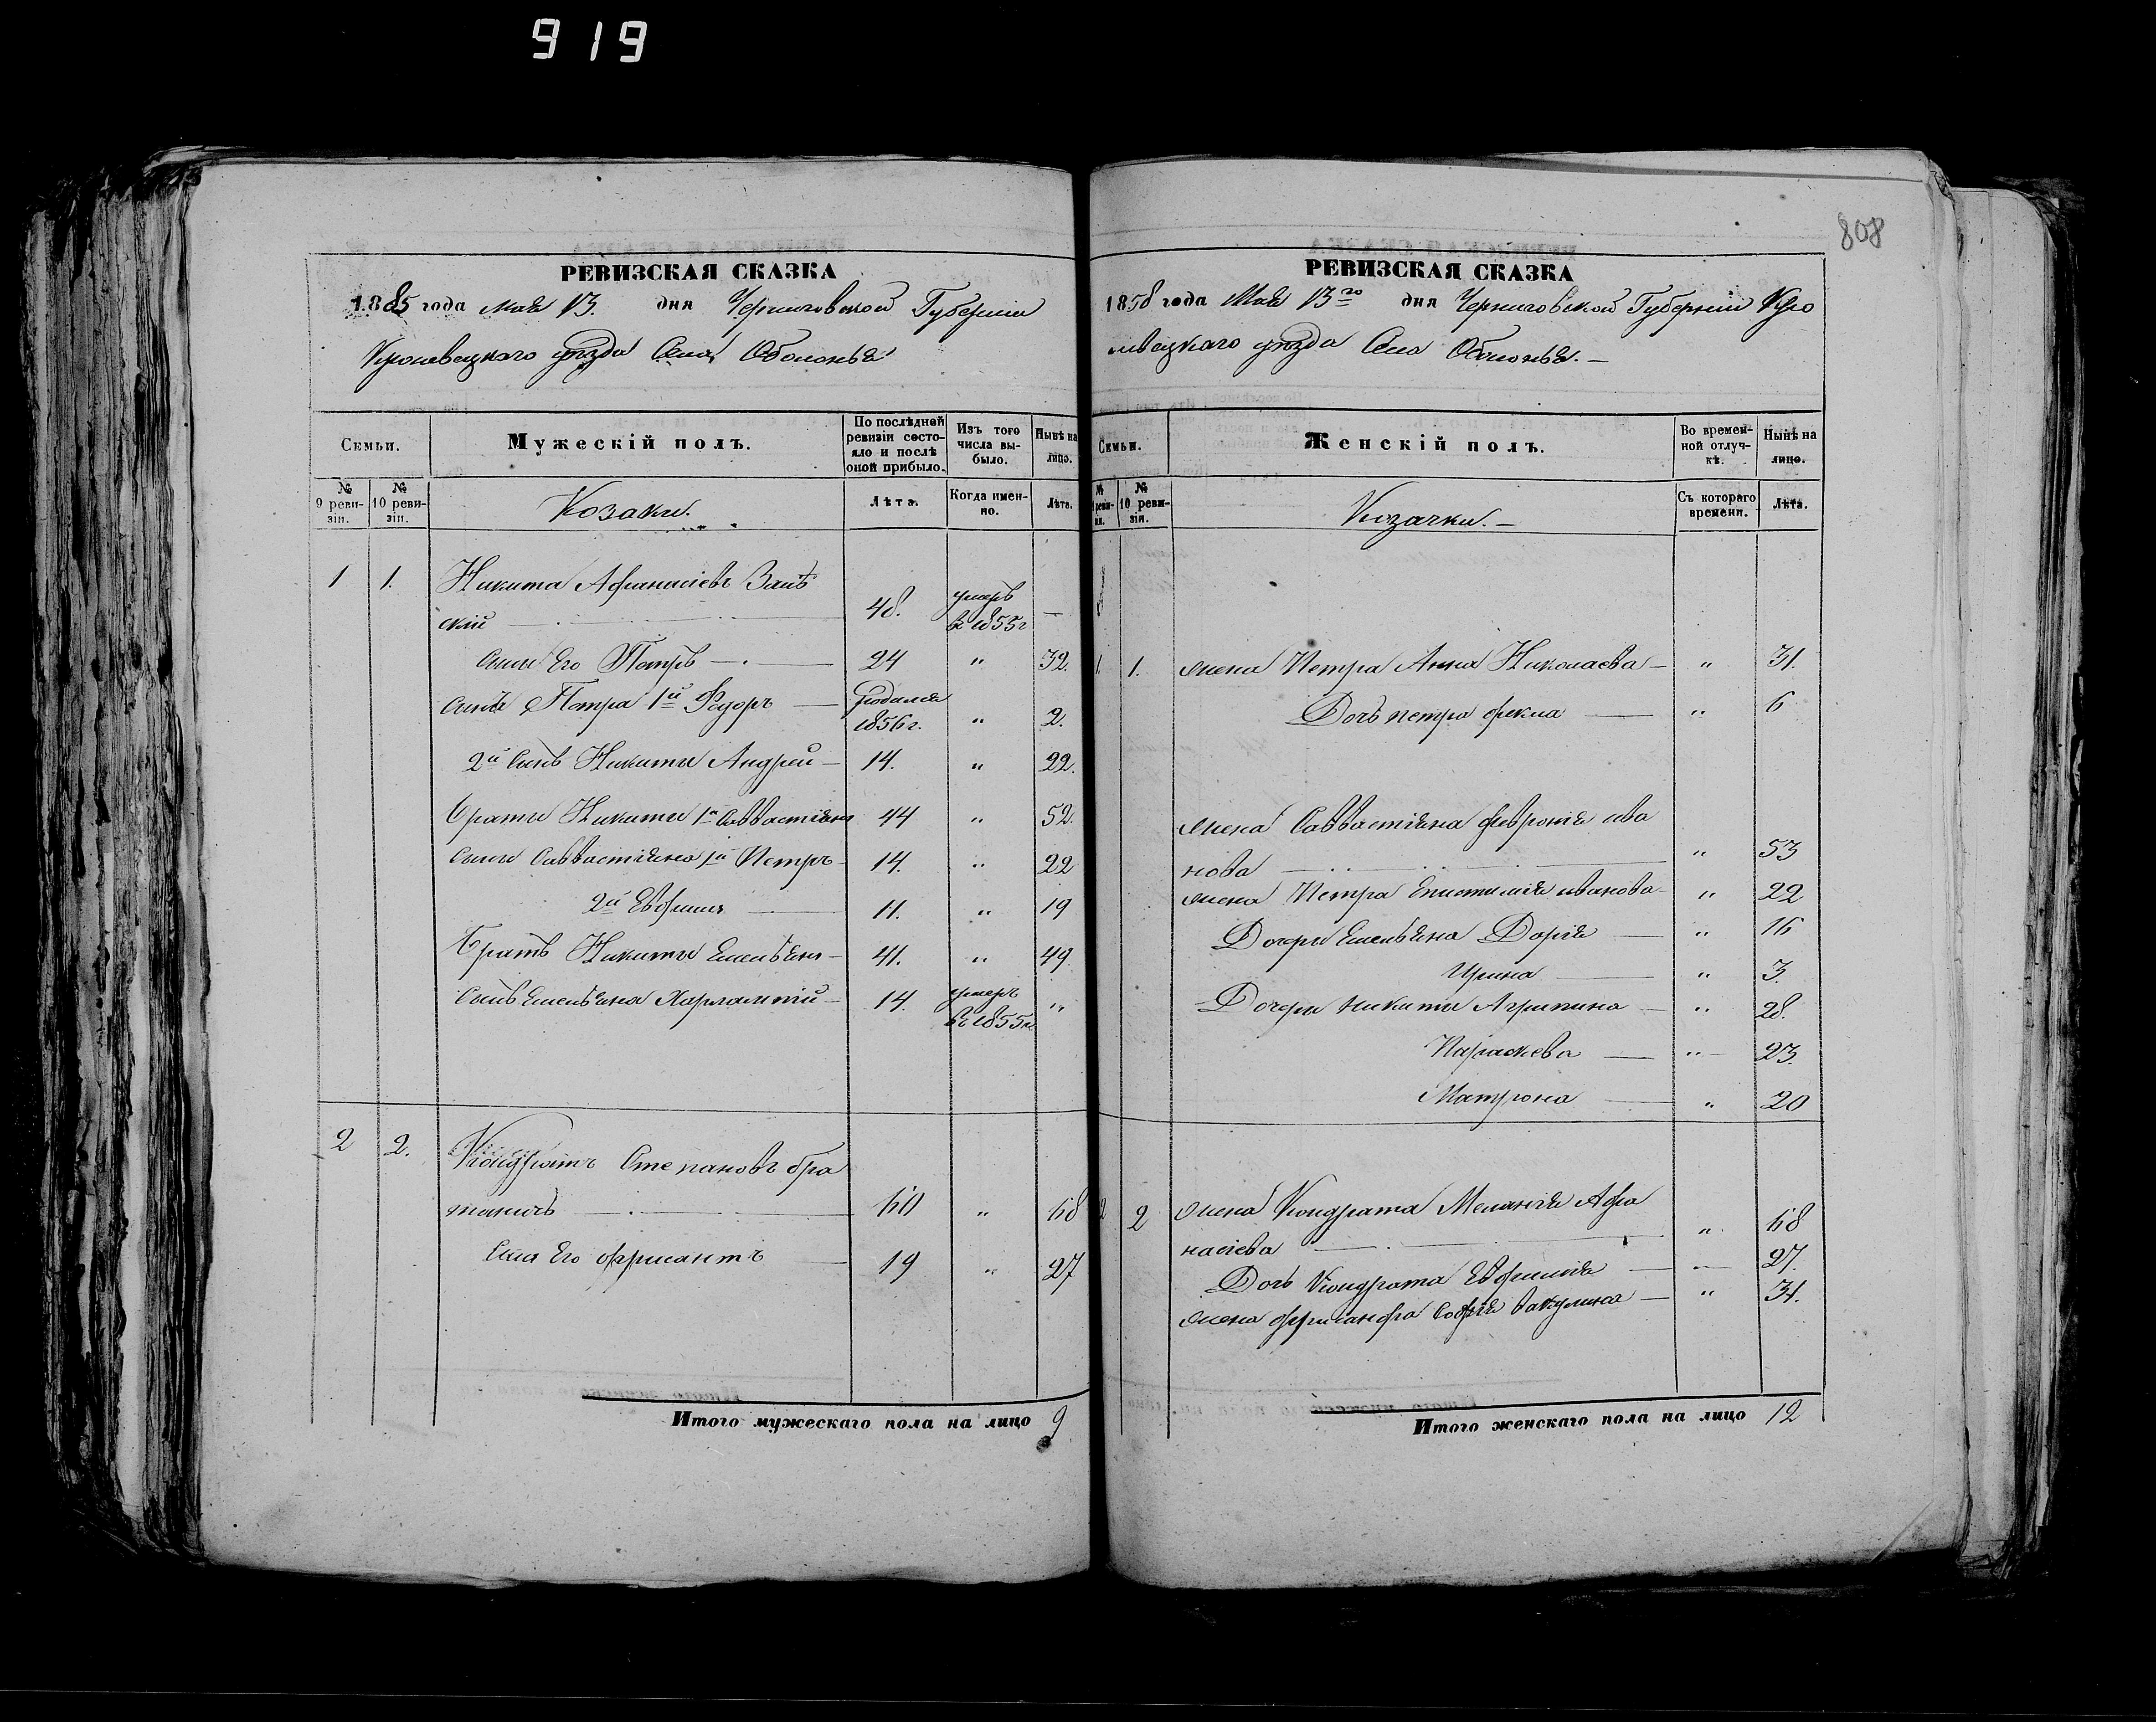 919
808
РЕВИЗСКАЯ СКАЗКА
1885 года мая 13. дня Черниговской Губерніи
Кролевецкаго уѣзда Села Оболонья
Семьи.
Мужескій полъ.
По послѣдней ревизіи состояло и послѣ оной прибыло.
Изъ того числа выбыло.
Нынѣ на лицо.
№ 9 ревизіи.
№ 10 ревизіи.
Козаки.
Лѣта.
Когда именно.
Лѣта.
1 1. Никита Афанасіевъ
скій — 48. умеръ в 1855г —
сынъ Его Петръ — 24 " 32.
сынъ Петра 1й Федоръ — родился 1856г. " 2.
2й сынъ Никиты Андрей — 14. " 22.
Браты Никиты 1й Савастіянъ 44 " 52.
сыны Савастіяна 1й Петръ 14. " 22
2й Евфимъ — 11. " 19
Братъ Никиты Емельянъ — 41. " 49
сынъ Емельяна Харлампій — 14. умеръ въ 1855г. "
2 2. Кондратъ Степановъ бра
таничъ — 60 " 68
сынъ Его — 19 " 27
Итого мужескаго пола на лицо 9
РЕВИЗСКАЯ СКАЗКА
1858 года Мая 13го дня Черниговской Губерніи Кро
левецкаго уѣзда Села Оболонья. —
Семьи.
Женскій полъ.
Во временной отлучкѣ.
Нынѣ на лицо.
№ 9 ревизіи.
№ 10 ревизіи.
Козачки. —
Съ котораго времени.
Лѣта.
1. 1. жена Петра Анна Николаева — " 31.
Дочь петра фекла — " 6
жена Савастіяна феврония ива
нова — " 53
жена Петра Епистимія иванова " 22
Дочери Емельяна Дарія — " 16
Ирина — " 3.
Дочери никиты Агрипина — " 28.
Параскева — " 23.
Матрона — " 20
2 2 жена Кондрата Меланія Афа
насіева — " 68
Дочь Кондрата Евфимія — " 27.
жена София — " 31.
Итого женскаго пола на лицо 12